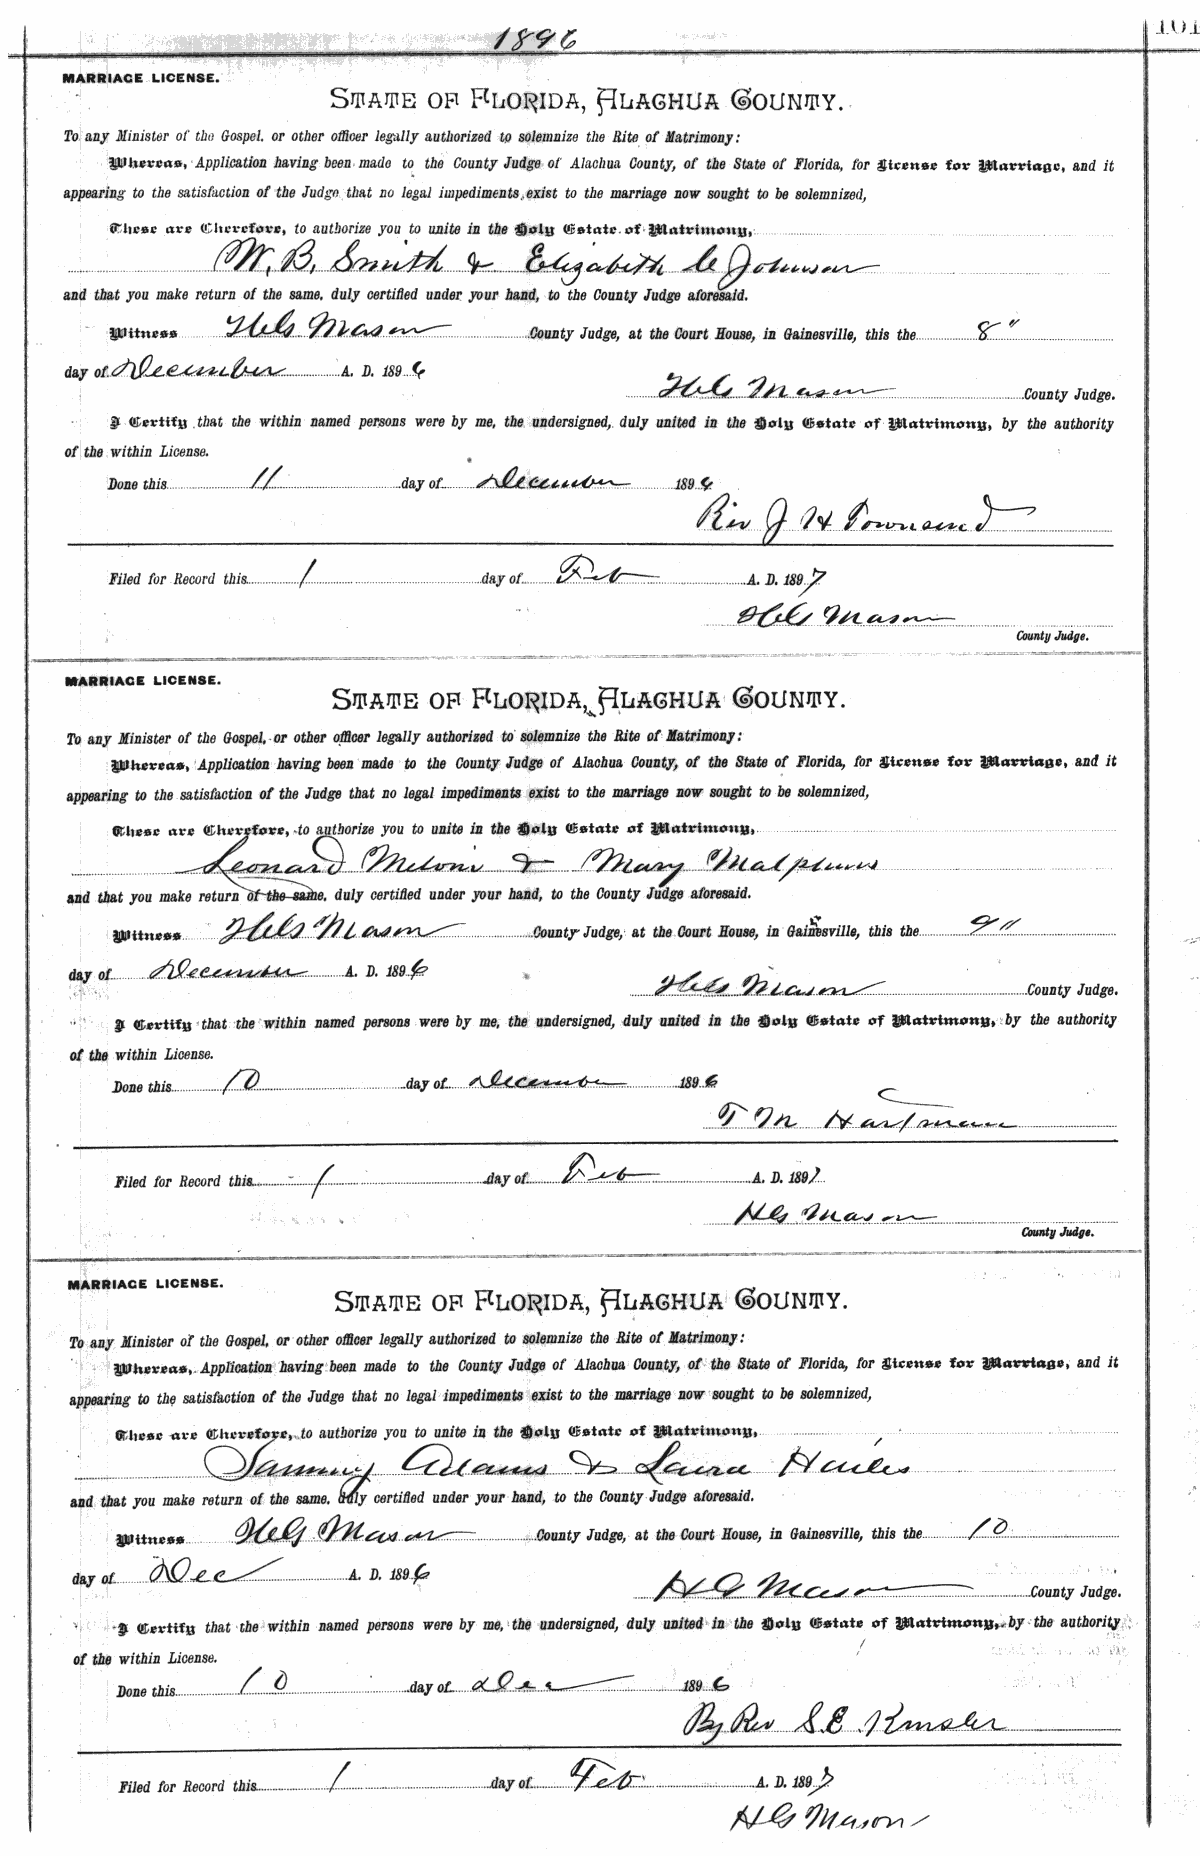 1896
101
MARRIAGE LICENSE.
STATE OF FLORIDA, ALACHUA COUNTY.
To any Minister of the Gospel, or other officer legally authorized to solemnize the Rite of Matrimony:
Whereas, Application having been made to the County Judge of Alachua County, of the State of Florida, for License for Marriage, and it
appearing to the satisfaction of the Judge that no legal impediments exist to the marriage now sought to be solemnized,
These are Therefore, to authorize you to unite in the Holy Estate of Matrimony,
W. B. Smith & Elizabeth C Johnson
and that you make return of the same, duly certified under your hand, to the County Judge aforesaid.
Witness HG Mason County Judge, at the Court House, in Gainesville, this the 8"
day of December A. D. 1896
HG Mason County Judge.
I Certify that the within named persons were by me, the undersigned, duly united in the Holy Estate of Matrimony, by the authority
of the within License.
Done this 11 day of December 1896
Rev J H Townsend
Filed for Record this 1 day of Feb A. D. 1897
HG Mason
County Judge.
MARRIAGE LICENSE.
STATE OF FLORIDA, ALACHUA COUNTY.
To any Minister of the Gospel, or other officer legally authorized to solemnize the Rite of Matrimony:
Whereas, Application having been made to the County Judge of Alachua County, of the State of Florida, for License for Marriage, and it
appearing to the satisfaction of the Judge that no legal impediments exist to the marriage now sought to be solemnized,
These are Therefore, to authorize you to unite in the Holy Estate of Matrimony,
Leonard & Mary Malphurs
and that you make return of the same, duly certified under your hand, to the County Judge aforesaid.
Witness HG Mason County Judge, at the Court House, in Gainesville, this the 9"
day of December A. D. 1896
HG Mason County Judge.
I Certify that the within named persons were by me, the undersigned, duly united in the Holy Estate of Matrimony, by the authority
of the within License.
Done this 10 day of December 1896
T M Hartman
Filed for Record this 1 day of Feb A. D. 1897
HG Mason
County Judge.
MARRIAGE LICENSE.
STATE OF FLORIDA, ALACHUA COUNTY.
To any Minister of the Gospel, or other officer legally authorized to solemnize the Rite of Matrimony:
Whereas, Application having been made to the County Judge of Alachua County, of the State of Florida, for License for Marriage, and it
appearing to the satisfaction of the Judge that no legal impediments exist to the marriage now sought to be solemnized,
These are Therefore, to authorize you to unite in the Holy Estate of Matrimony,
Sammy Adams & Laura Hailes
and that you make return of the same, duly certified under your hand, to the County Judge aforesaid.
Witness HG Mason County Judge, at the Court House, in Gainesville, this the 10
day of Dec A. D. 1896
HG Mason County Judge.
I Certify that the within named persons were by me, the undersigned, duly united in the Holy Estate of Matrimony, by the authority
of the within License.
Done this 10 day of Dec 1896
By Rev S. E. Kinsler
Filed for Record this 1 day of Feb A. D. 1897
HG Mason